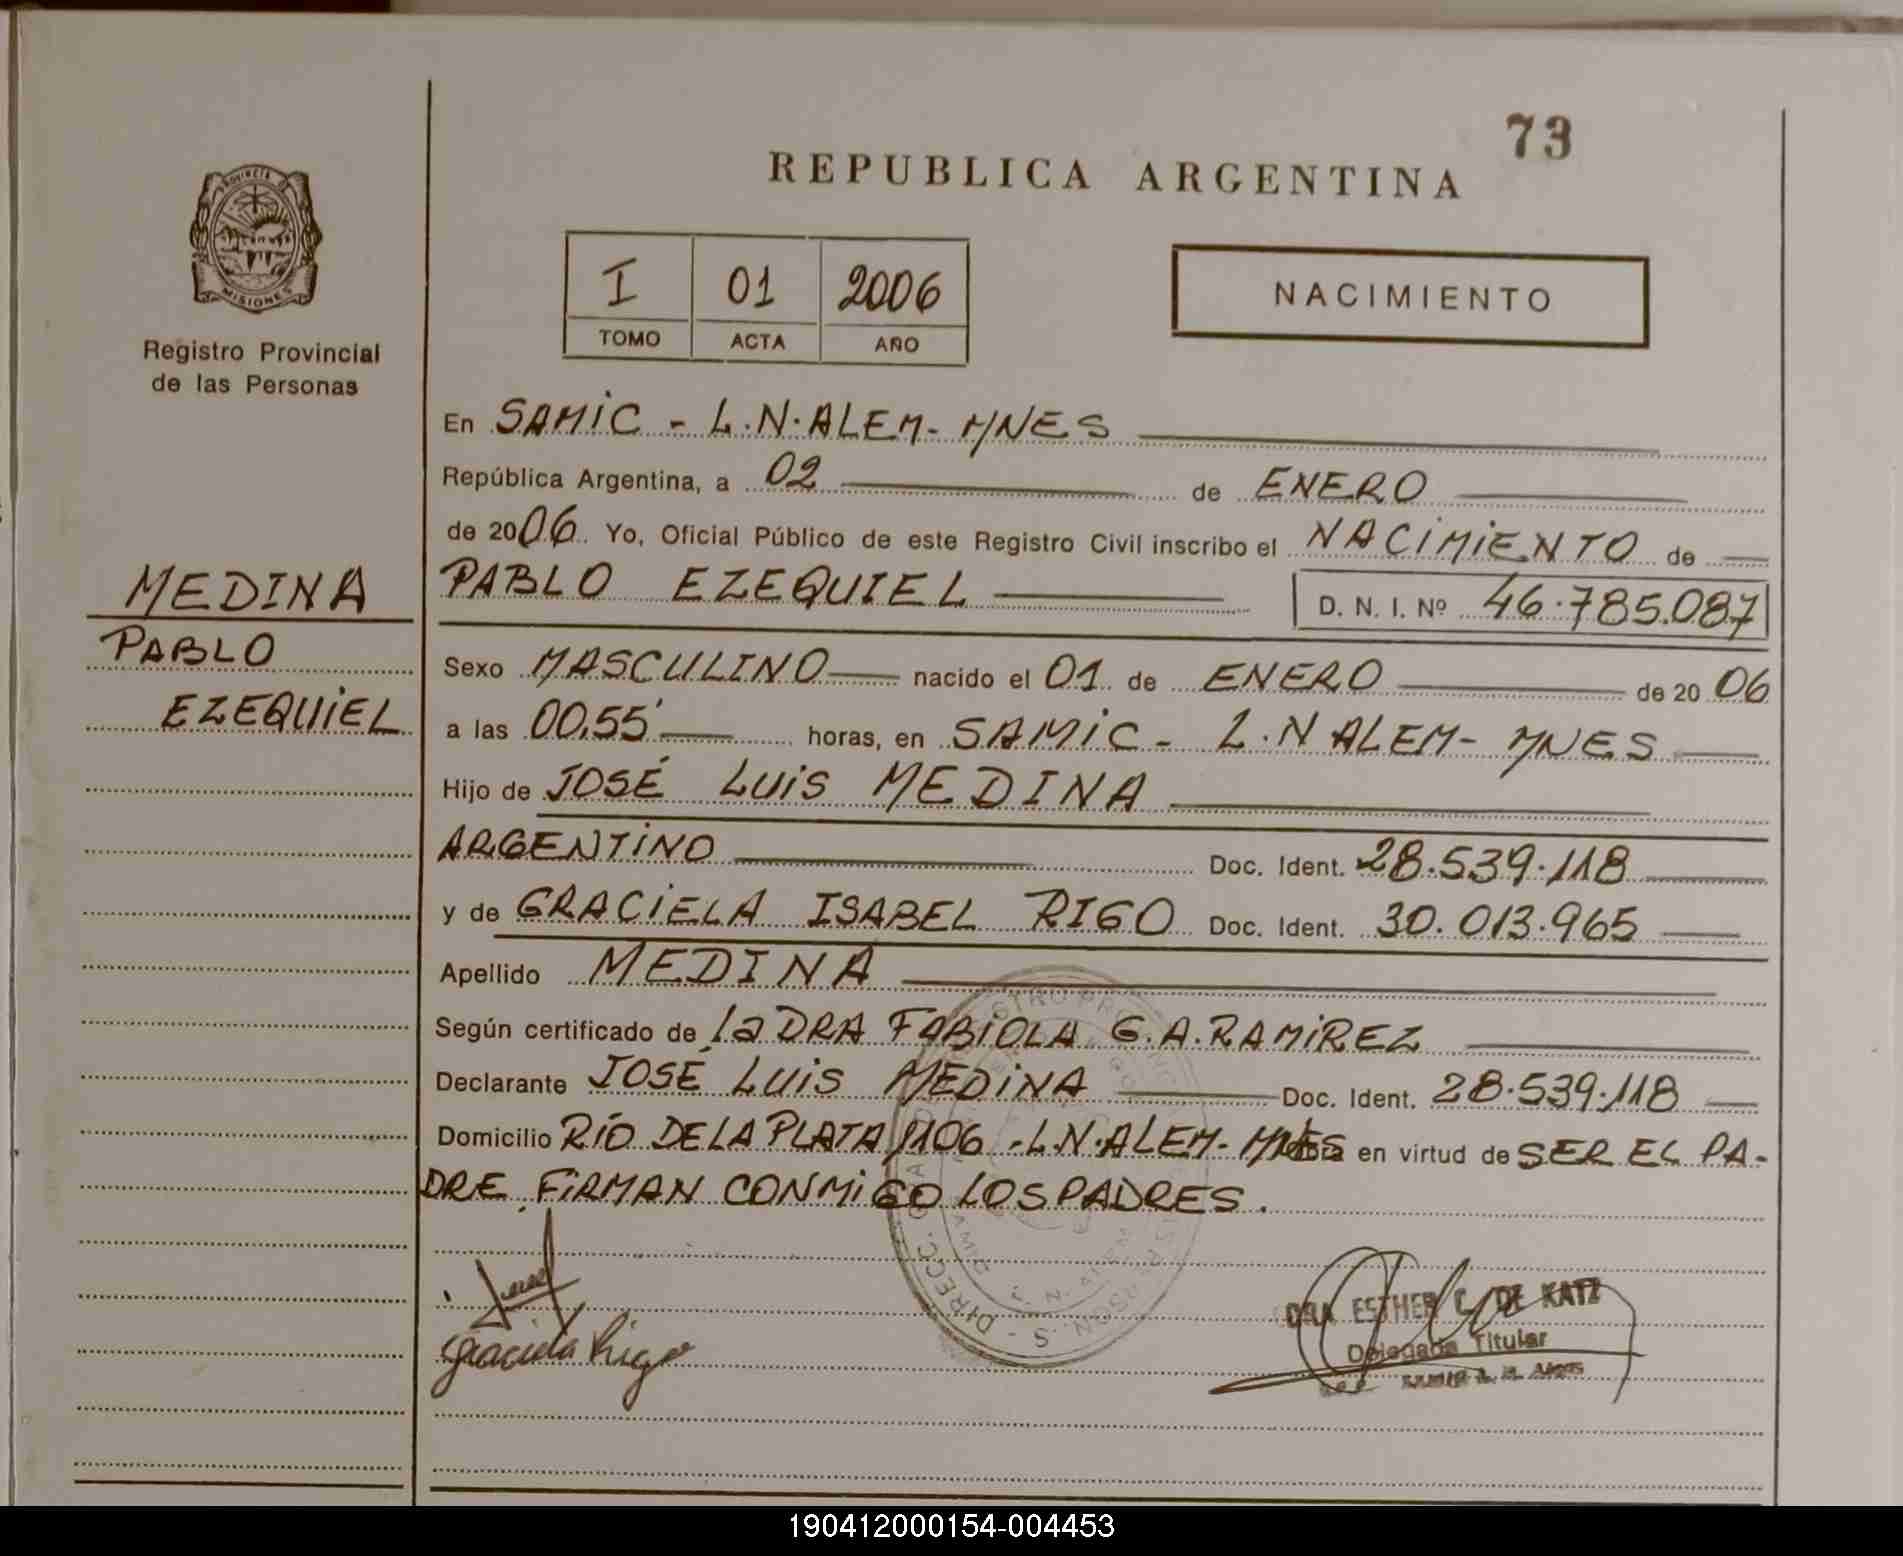 73
REPUBLICA ARGENTINA
PROVINCIA DE
MISIONES
Registro Provincial
de las Personas
I 01 2006
TOMO ACTA AÑO
NACIMIENTO
En SAMiC - L.N.ALEM- MNES
República Argentina, a 02 de ENERO
de 2006. Yo, Oficial Público de este Registro Civil inscribo el NACiMiENTO de
MEDINA
PABLO
EZEQUiEL
PABLO EZEQUIEL D. N. I. Nº 46.785.087
Sexo MASCULINO nacido el 01 de ENERO de 20 06
a las 00,55' horas, en SAMiC - L.N ALEM- MNES
Hijo de JOSÉ LUiS MEDINA
ARGENTiNO Doc. Ident. 28.539.118
y de GRACiELA ISABEL RIGO Doc. Ident. 30.013.965
Apellido MEDINA
Según certificado de la DRA FABiOLA G.A.RAMiREZ
Declarante JOSÉ LUiS MEDiNA Doc. Ident. 28.539.118
Domicilio RÍO DE LA PLATA 1106 -L.N.ALEM- MNES en virtud de SER EL PA-
DRE. FiRMAN CONMiGO LOS PADRES.
Graciela Rigo
DRA ESTHER C. DE KATZ
Delegada Titular
190412000154-004453